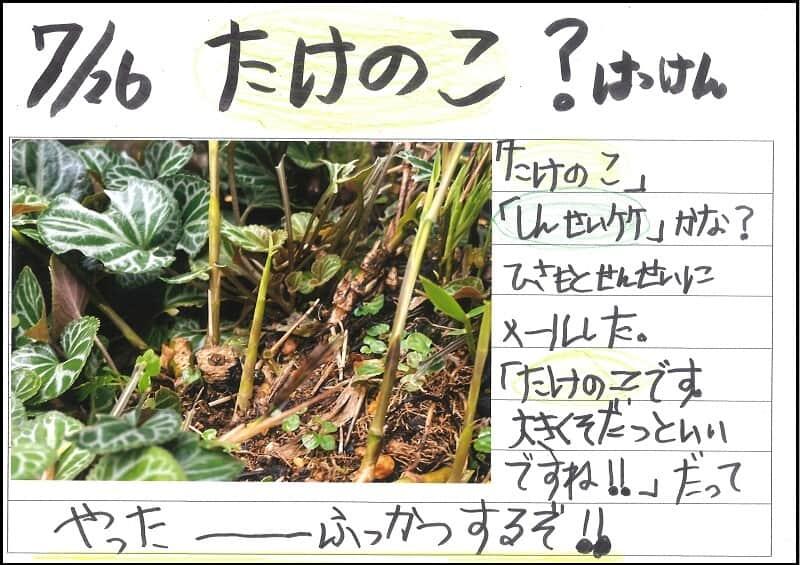 7/26 たけのこ？はっけん。
「たけのこ」
「しんせいケケ」かな？
ひさもとせんせいに
メールした。
「たけのこです。
大きくそだっといい
ですね!!」だって
やった ――ふっかつするぞ!!